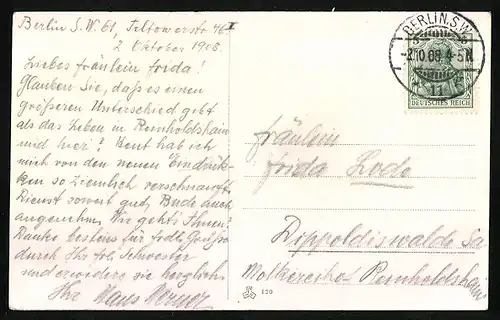 Berlin S.W. 61, Teltowerstr. 46 I
2. Oktober 1908.
Liebes Fräulein Frida!
Glauben Sie, daß es einen
größeren Unterschied gibt
als das Leben in Reinholdshain
und hier? Heut hab ich
mich von den neuen Eindrük-
ken so ziemlich verschnauft.
Dienst soweit gut, Bude auch
angenehm. Wie geht's Ihnen?
Danke bestens für frdl. Grüße
durch Ihr frl. Schwester
und erwidere sie herzlichst
Ihr Hans
BERLIN. S.W.
2.10.08. 4-5N
11
DEUTSCHES REICH
Fräulein
Frida Lode
Dippoldiswalde Sa.
Molkereihof Reinholdshain
120